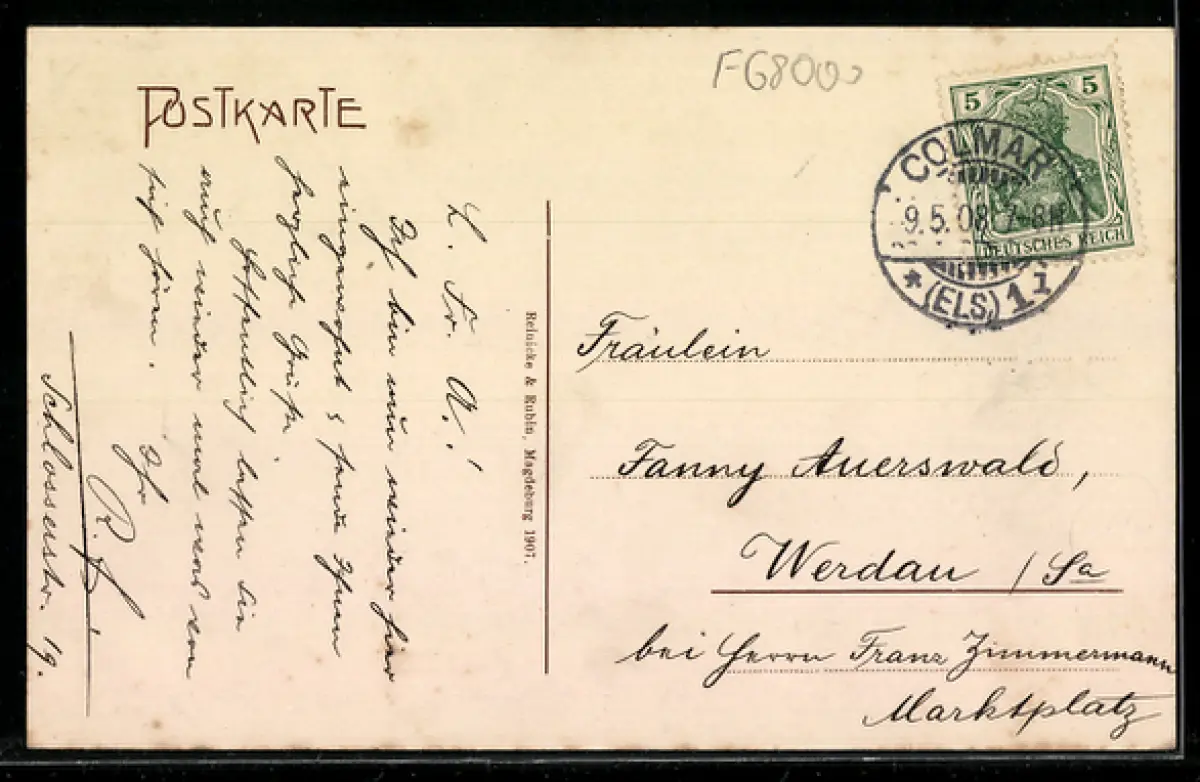 POSTKARTE
F6800
5 5
DEUTSCHES REICH
COLMAR
9.5.08 7-8N
* (ELS.) 1 i
L. Fr. A.!
Ich bin nun wieder hier
eingerückt & sende Ihnen
herzliche Grüße
Hoffentlich lassen Sie
auch wieder mal was von
sich hören.
Ihr
R.
Schlosserstr. 19.
Reinicke & Rubin, Magdeburg 1907.
Fräulein
Fanny Auerswald,
Werdau / Sa
bei Herrn Franz Zimmermann
Marktplatz